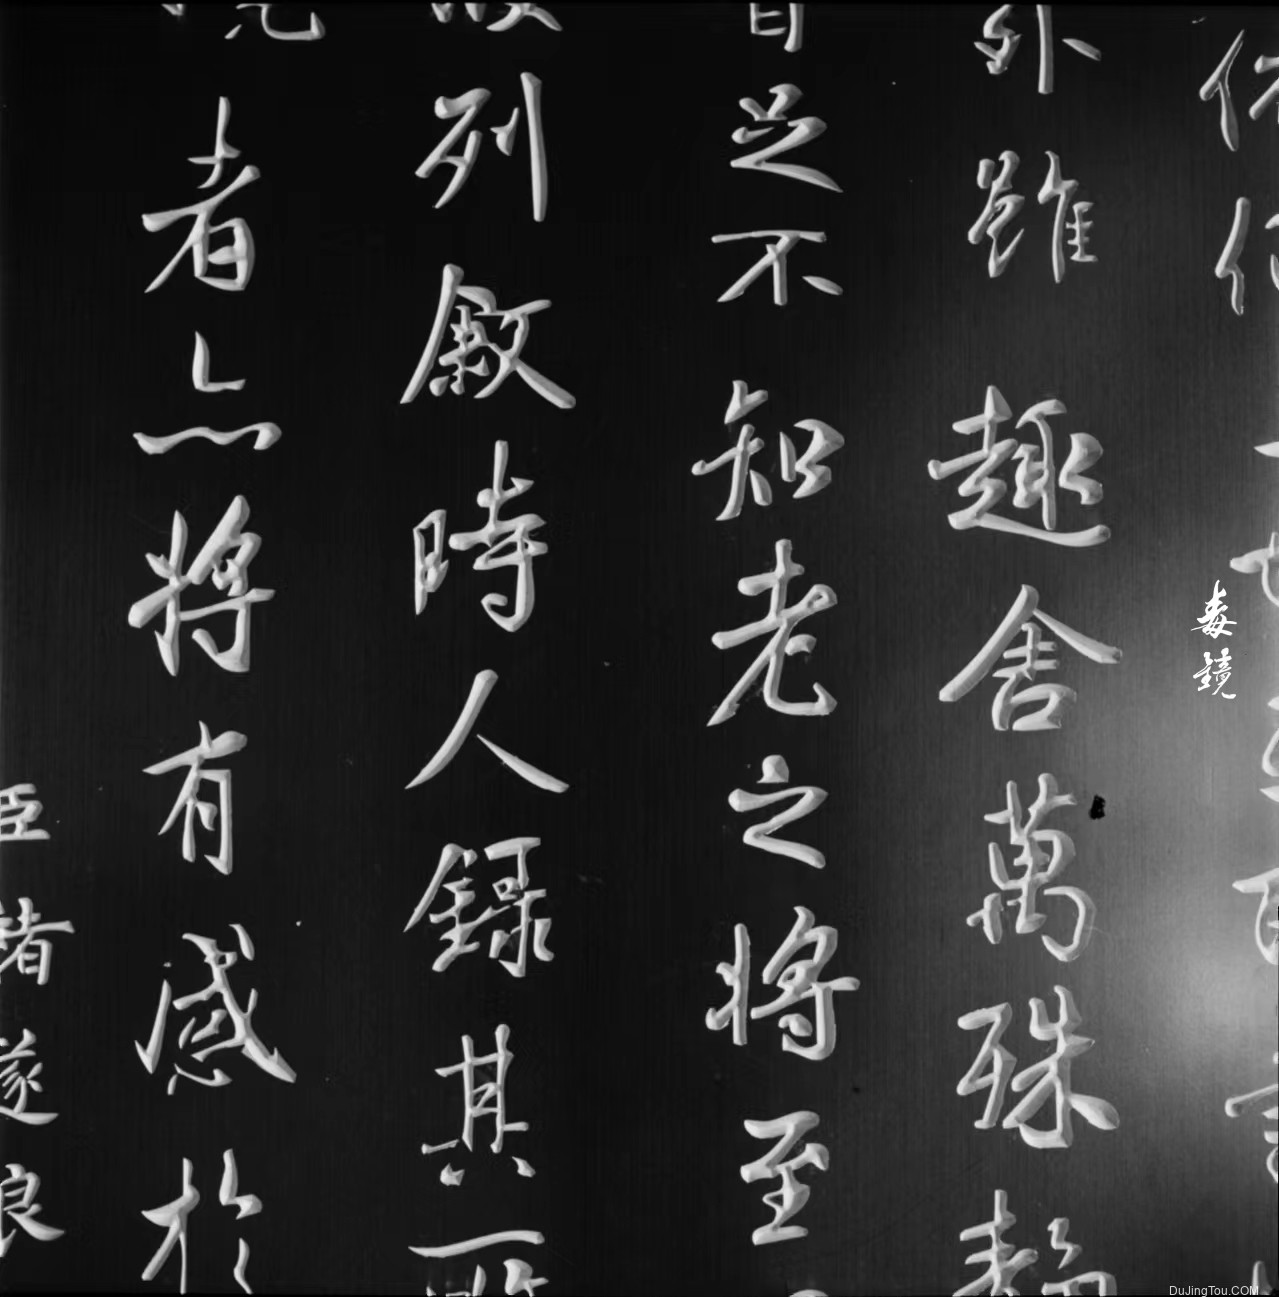 外雖趣舍萬殊靜
足不知老之將至
列敘時人錄其所
者亦將有感於
臣褚遂良
毒鏡
DuJingTou.COM